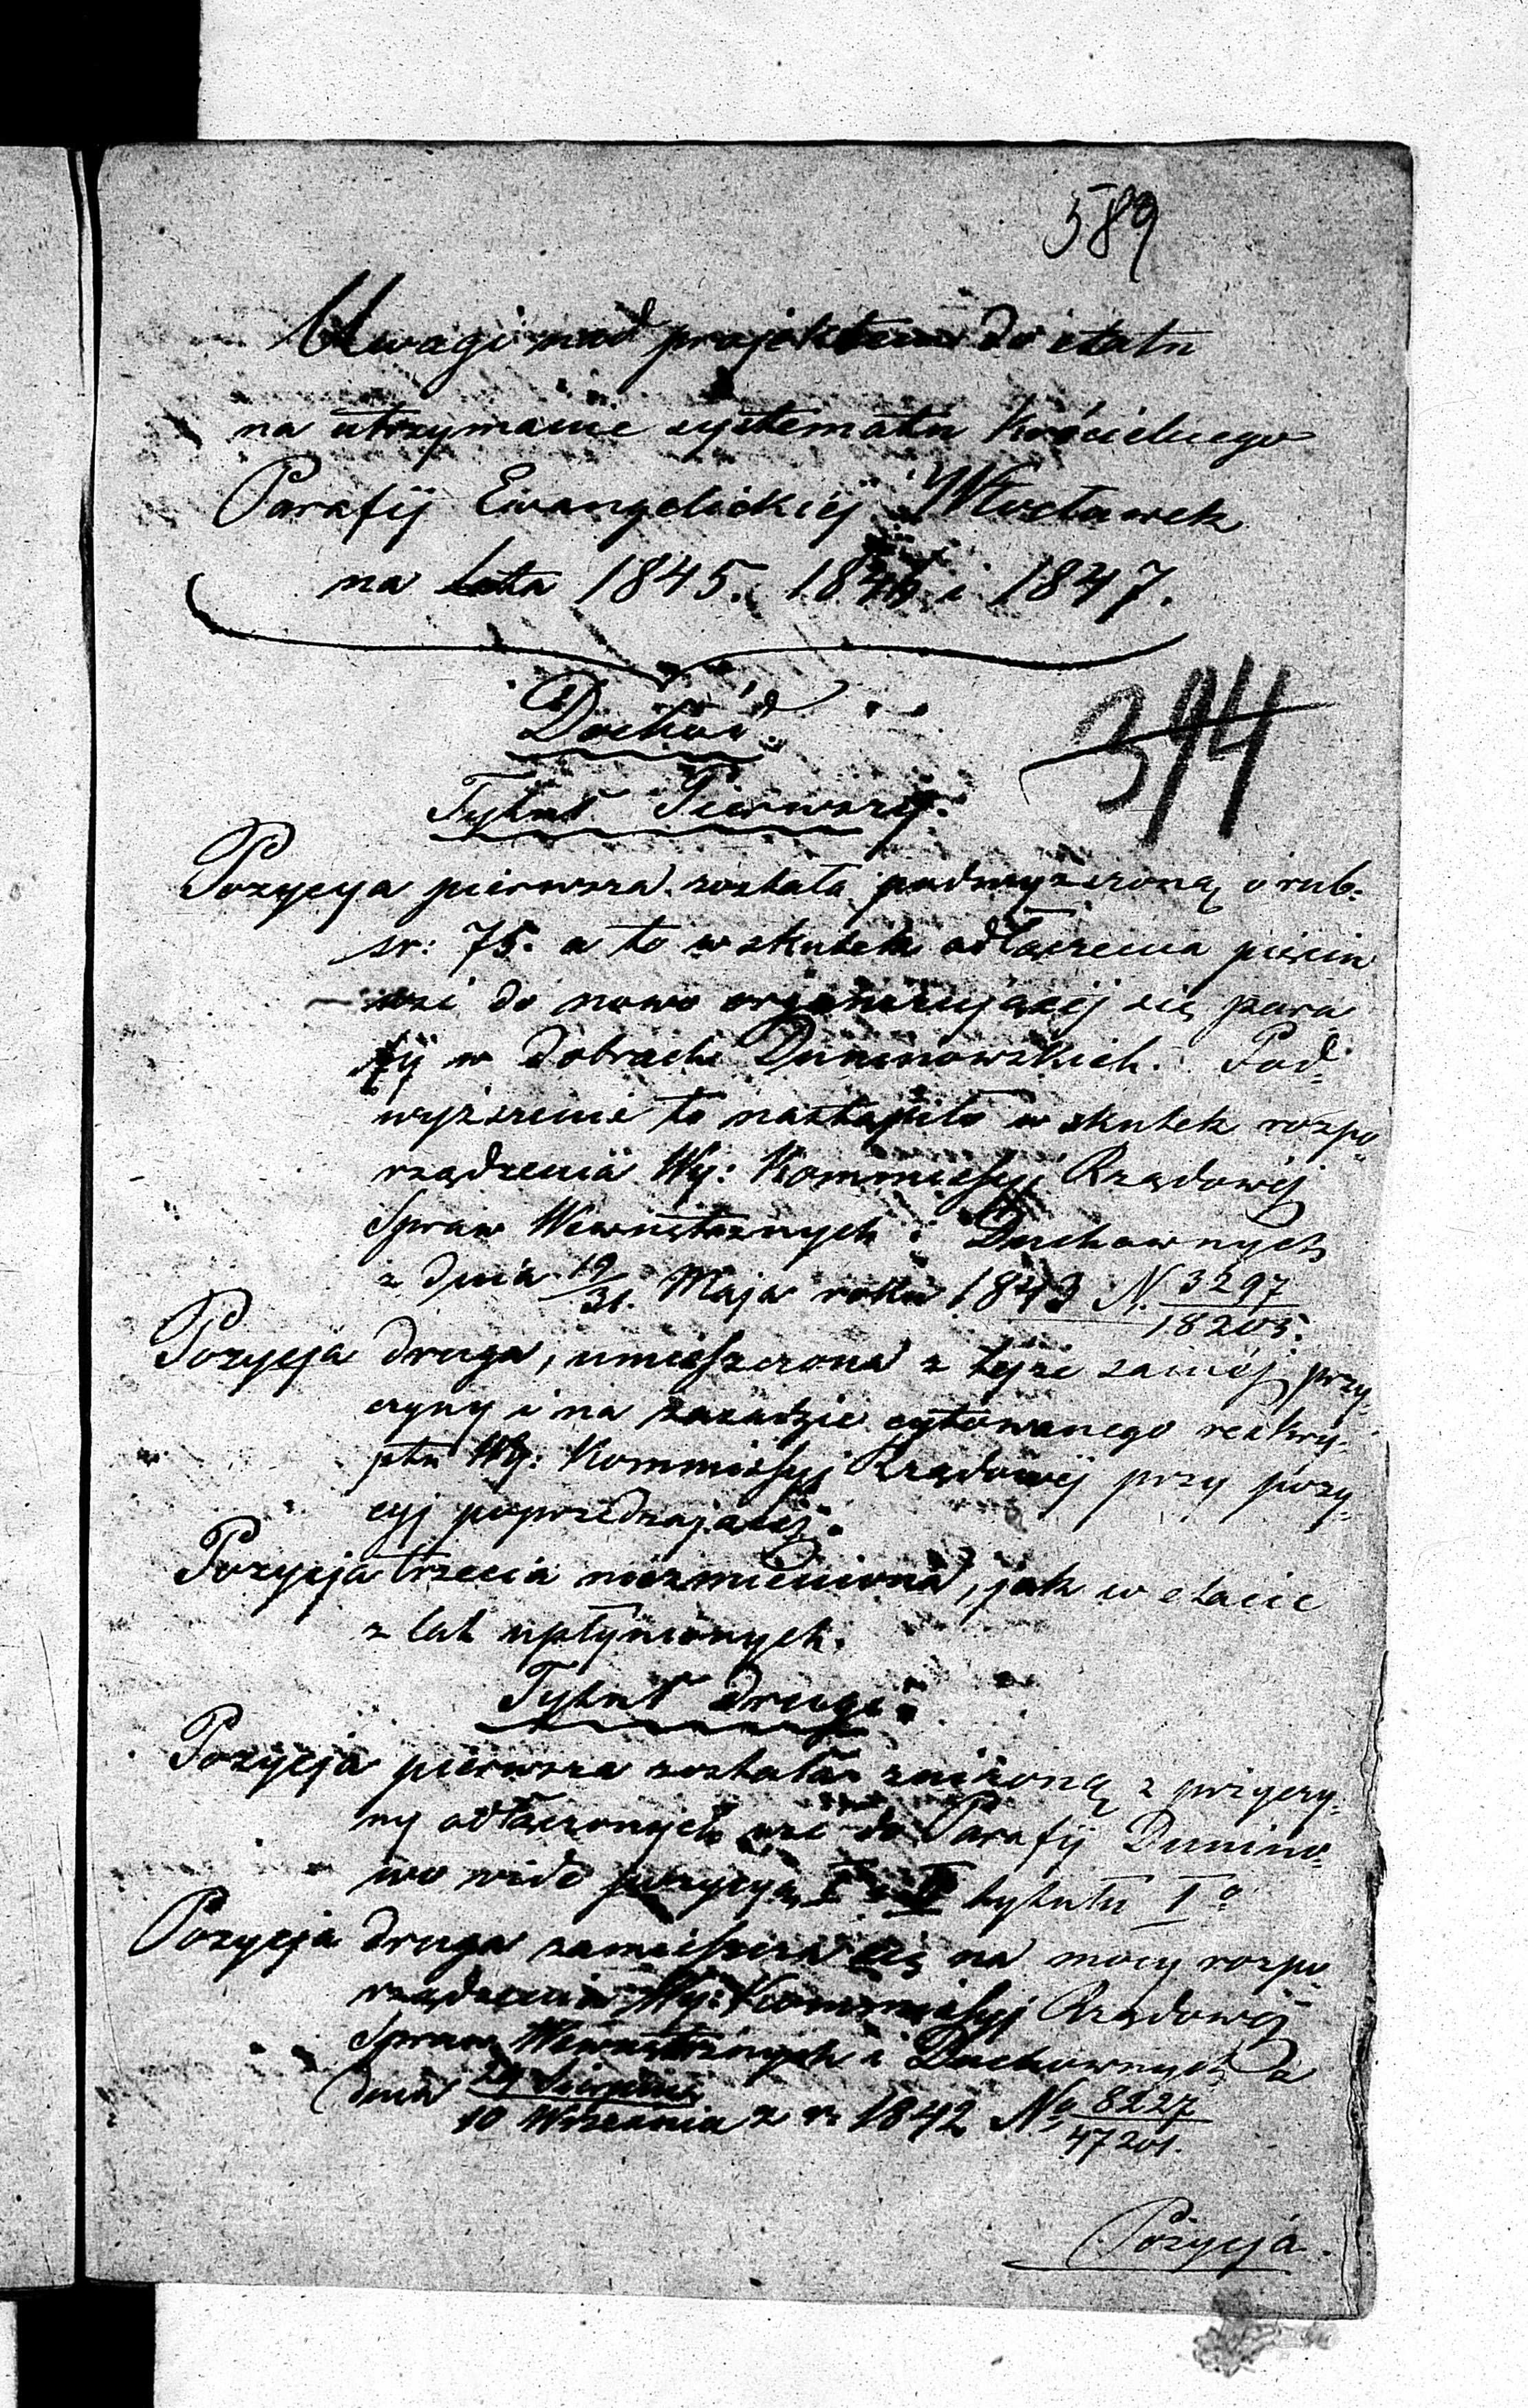 589
Uwagi nad projektem do etatu
na utrzymanie systematu Kościelnego
Parafij Ewangelickiej Włocławek
na lata 1845. 1846 i 1847.
Dochód.
394
Tytuł Pierwszy.
Pozycya pierwsza została podwyższoną o rub.
sr: 75. a to w skutek odłączenia pięciu
wsi do nowo organizującej się para
fij w dobrach Duninowskich. Pod-
wyższenie to nastąpiło w skutek rozpo-
rządzenia Wy: Kommissyj Rządowéj
Spraw Wewnętrznych i Duchownych
z dnia 19/31. Maja roku 1843 N. 3297/18205.
Pozycja druga, umieszczona z tejże saméj przy-
czyny i na zasadzie cytowanego reskry-
ptu Wy: Kommissyj Rządowéj przy pozy-
cyj poprzedzającéj.
Pozycja trzecia niezmieniona, jak w etacie
z lat upłynionych.
Tytuł drugi.
Pozycja pierwsza została zniżoną z przyczy-
ny odłączonych wsi do Parafij Dunino-
wo vide pozycyą I i II tytułu I°
Pozycja druga zamieszcza się na mocy rozpo-
rządzenia Wy: Kommissyj Rządowéj
Spraw Wewnętrznych i Duchownych z
dnia 29 Sierpnia/10 Września z r. 1842 No 8227/47201.
Pozycja